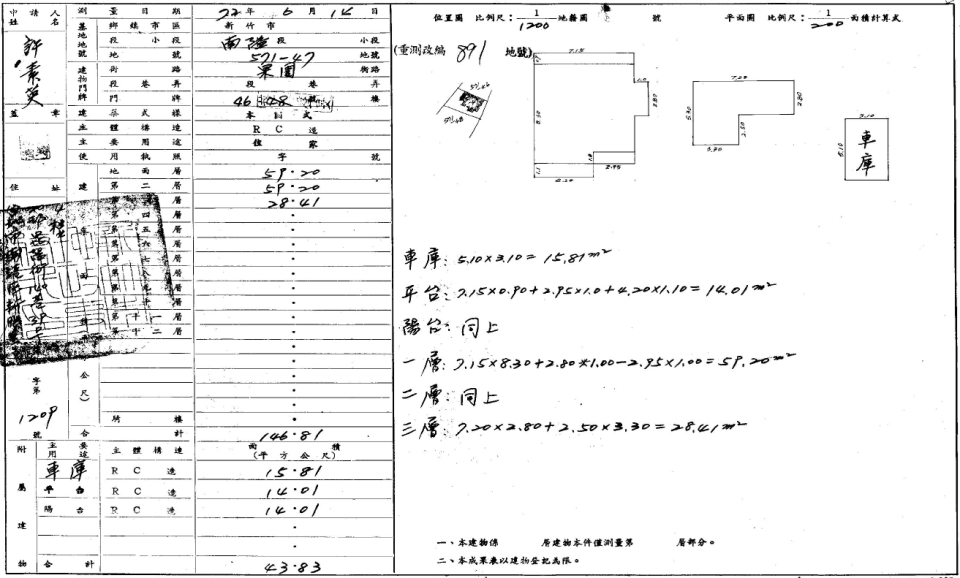 申請人 姓名
許素英
蓋章
測量日期 72年6月14日
基地地號 鄉鎮市區 新竹市
段 小段 南隘段 小段
地號 571-47 地號
建物門牌 街路 果園 街路
段巷弄 段巷弄
門牌 46 48 樓
建築式樣 本國式
主體構造 RC造
主要用途 住家
使用執照 字 號
住址
建
地面層 59.20
第二層 59.20
第三層 28.41
第四層
第五層
第六層
第七層
第八層
第九層
第十層
第十一層
第十二層
公尺)
騎樓
合計 146.81
字第
1209
號
附屬建物
主要用途 主體構造 面積(平方公尺)
車庫 RC造 15.81
平台 RC造 14.01
陽台 RC造 14.01
合計 43.83
位置圖 比例尺:1/1200 地籍圖 號 平面圖 比例尺:1/200 面積計算式
(重測改編 891 地號)
571-46
571-48
7.15
1.0
2.80
8.30
1.0
2.95
1.1
4.20
7.20
2.80
5.30
2.50
3.30
3.10
5.10
車庫
車庫: 5.10×3.10=15.81m²
平台: 7.15×0.90+2.95×1.0+4.20×1.10=14.01m²
陽台: 同上
一層: 7.15×8.30+2.80×1.00-2.95×1.00=59.20m²
二層: 同上
三層: 7.20×2.80+2.50×3.30=28.41m²
一、本建物係 層建物本件僅測量第 層部分。
二、本成果表以建物登記為限。